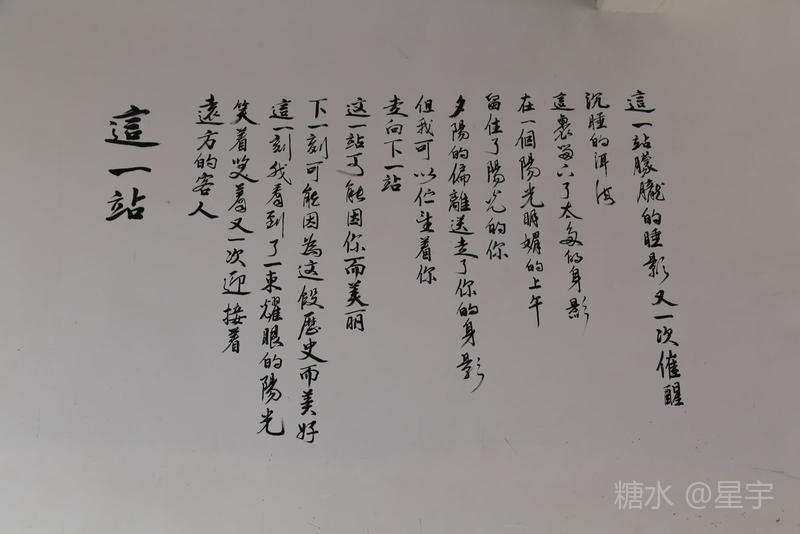 這一站朦朧的睡影 又一次催醒
沉睡的洱海
這裏留下了太多的身影
在一個陽光明媚的上午
留住了陽光的你
夕陽的偏離送走了你的身影
但我可以伫望着你
走向下一站
这一站可能因你而美丽
下一刻可能因為这段歷史而美好
這一刻我看到了一束耀眼的陽光
笑着笑着又一次迎接着
遠方的客人
這一站
糖水 @星宇